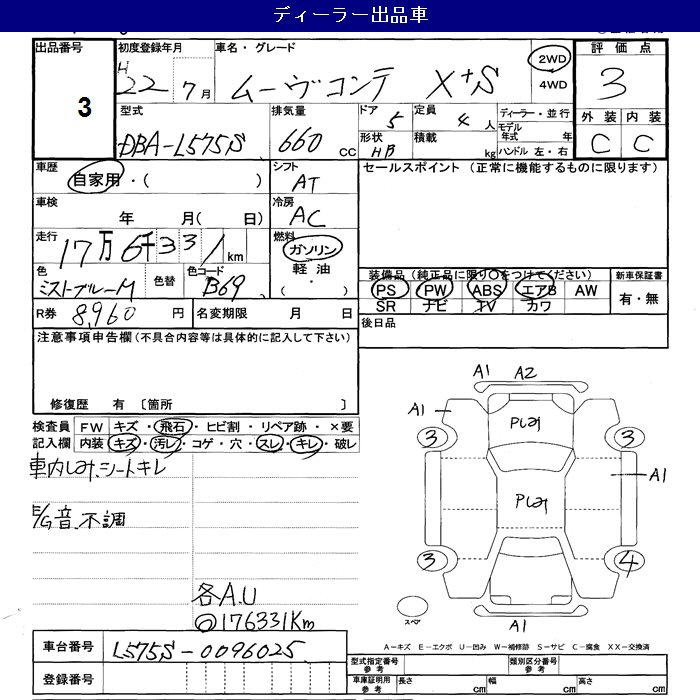 ディーラー出品車
出品番号 初度登録年月 車名・グレード 評価点
3 H 22 7月 ムーヴコンテ X+S 2WD 4WD 3
型式 排気量 ドア 定員 ディーラー・並行 外装 内装
DBA-L575S 660 CC 5 4 人 モデル年式 年 C C
形状 積載 ハンドル 左・右
HB kg
車歴 シフト セールスポイント (正常に機能するものに限ります)
自家用・( ) AT
車検 冷房
年 月( 日) AC
走行 燃料
17万6千331km ガソリン
色 色替 色コード 軽油 装備品(純正品に限り○をつけてください) 新車保証書
ミストブルーM B69 ( ・ ) PS PW ABS エアB AW 有・無
R券 8,960 円 名変期限 月 日 SR ナビ TV カワ
注意事項申告欄(不具合内容等は具体的に記入して下さい) 後日品
修復歴 有 〔箇所 〕
検査員 FW キズ・飛石・ヒビ割・リペア跡・×要
記入欄 内装 キズ・汚レ・コゲ・穴・スレ・キレ・破レ
車内しみ、シートキレ
E/G音、不調
各A.U
176331Km
A1 A2
A1
3 3
A1
3 4
A1
スペア
A-キズ E-エクボ U-凹み W-補修跡 S-サビ C-腐食 XX-交換済
車台番号 L575S-0096025
登録番号
型式指定番号 参考 類別区分番号 参考
車庫証明用 参考 長さ cm 幅 cm 高さ cm